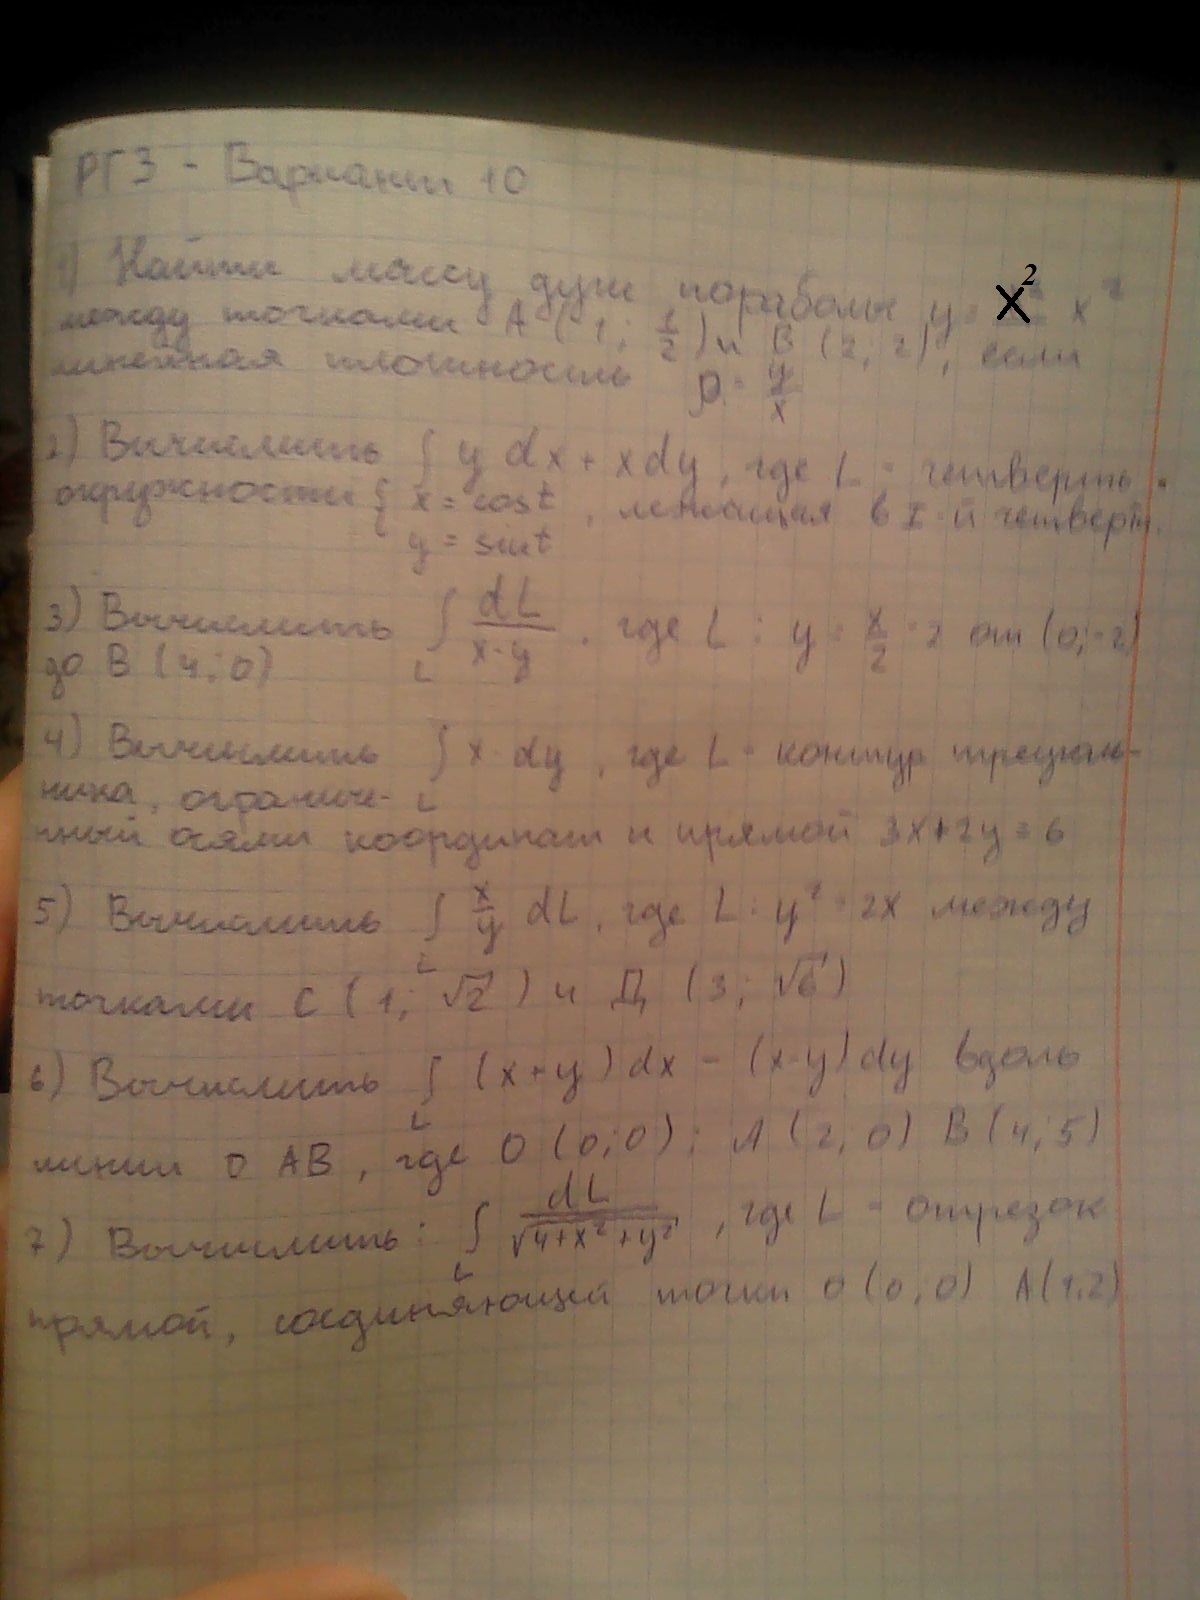 РГЗ - Вариант 10
1) Найти массу дуги параболы y = x² x²
между точками A (1; 1/2) и B (2, 2), если
линейная плотность ρ = y/x
2) Вычислить ∫ y dx + x dy, где L - четверть
окружности { x = cost, лежащая в I-й четверт.
y = sint
3) Вычислить ∫ dL/(x-y), где L: y = x/2 - 2 от (0; -2)
до B (4; 0) L
4) Вычислить ∫ x · dy, где L - контур треуголь-
ника, ограниче- L
нный осями координат и прямой 3x+2y=6
5) Вычислить ∫ x/y dL, где L: y² = 2x между
L
точками C (1; √2) и Д (3; √6)
6) Вычислить ∫ (x+y) dx - (x-y) dy вдоль
L
линии OAB, где O (0; 0); A (2, 0) B (4; 5)
7) Вычислить: ∫ dL/√4+x²+y², где L - отрезок
L
прямой, соединяющей точки O (0; 0) A (1;2)